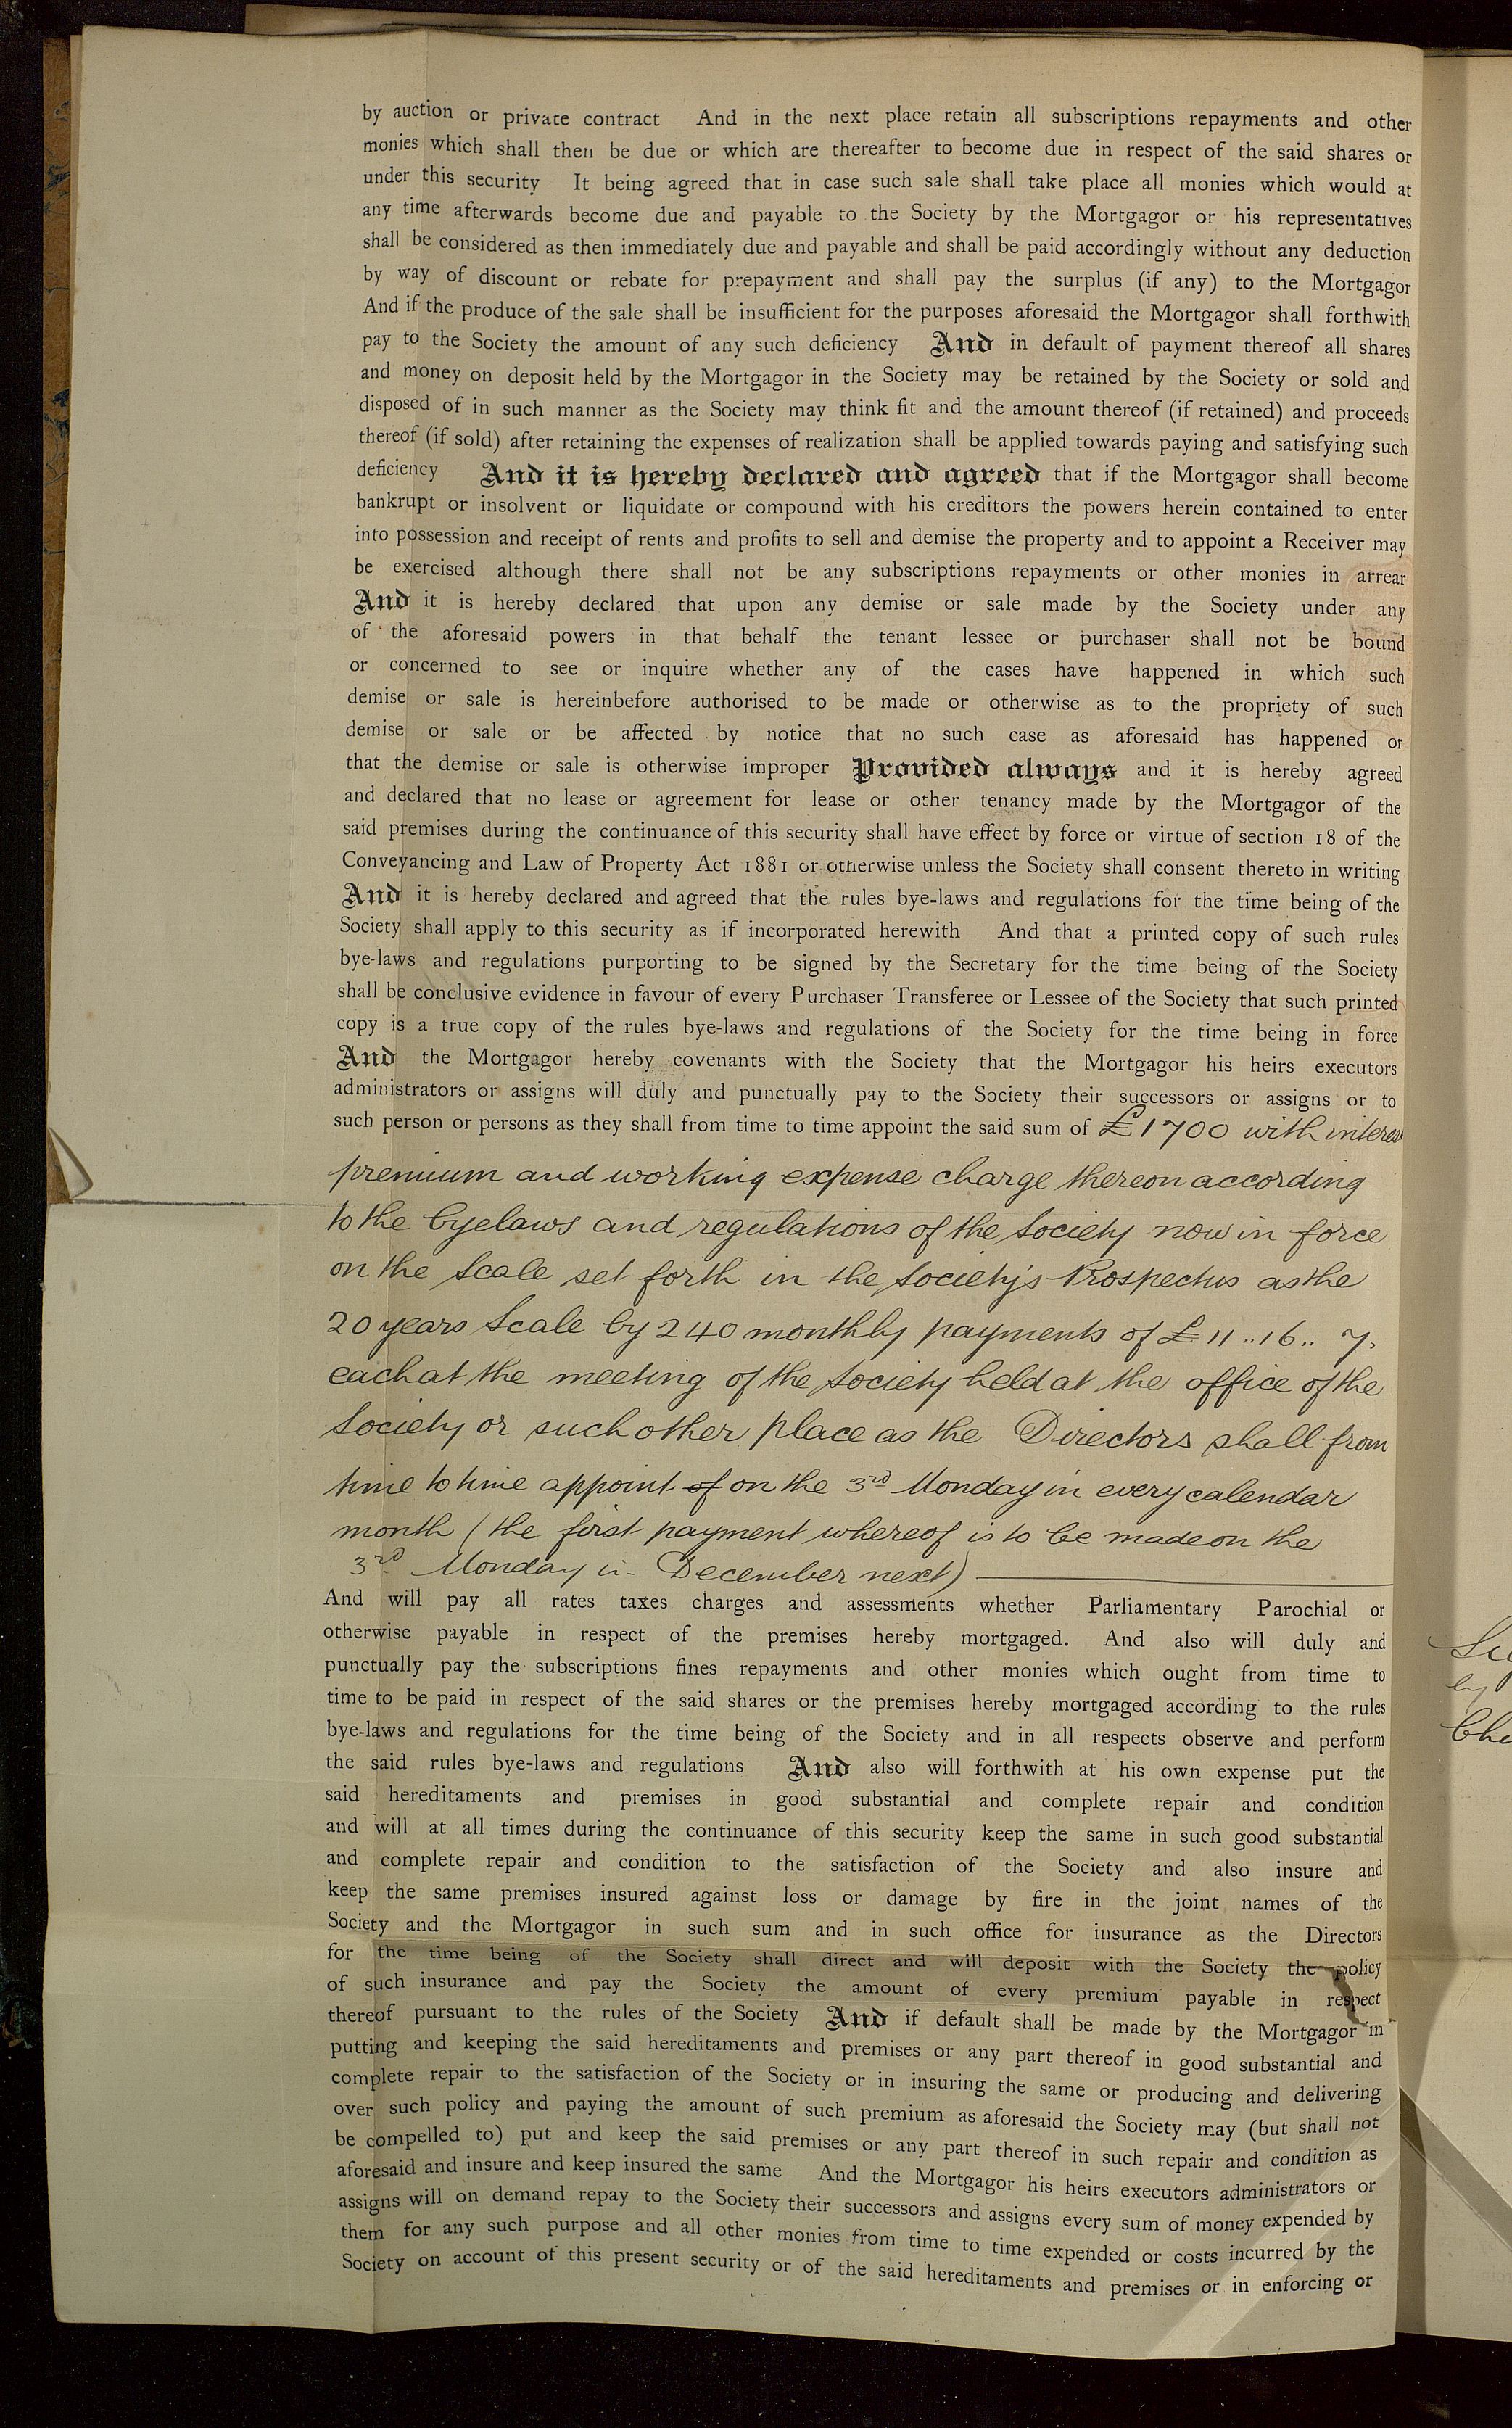 by auction or private contract And in the next place retain all subscriptions repayments and other
monies which shall then be due or which are thereafter to become due in respect of the said shares or
under this security It being agreed that in case such sale shall take place all monies which would at
any time afterwards become due and payable to the Society by the Mortgagor or his representatives
shall be considered as then immediately due and payable and shall be paid accordingly without any deduction
by way of discount or rebate for prepayment and shall pay the surplus (if any) to the Mortgagor
And if the produce of the sale shall be insufficient for the purposes aforesaid the Mortgagor shall forthwith
pay to the Society the amount of any such deficiency And in default of payment thereof all shares
and money on deposit held by the Mortgagor in the Society may be retained by the Society or sold and
disposed of in such manner as the Society may think fit and the amount thereof (if retained) and proceeds
thereof (if sold) after retaining the expenses of realization shall be applied towards paying and satisfying such
deficiency And it is hereby declared and agreed that if the Mortgagor shall become
bankrupt or insolvent or liquidate or compound with his creditors the powers herein contained to enter
into possession and receipt of rents and profits to sell and demise the property and to appoint a Receiver may
be exercised although there shall not be any subscriptions repayments or other monies in arrear
And it is hereby declared that upon any demise or sale made by the Society under any
of the aforesaid powers in that behalf the tenant lessee or purchaser shall not be bound
or concerned to see or inquire whether any of the cases have happened in which such
demise or sale is hereinbefore authorised to be made or otherwise as to the propriety of such
demise or sale or be affected by notice that no such case as aforesaid has happened or
that the demise or sale is otherwise improper Provided always and it is hereby agreed
and declared that no lease or agreement for lease or other tenancy made by the Mortgagor of the
said premises during the continuance of this security shall have effect by force or virtue of section 18 of the
Conveyancing and Law of Property Act 1881 or otherwise unless the Society shall consent thereto in writing
And it is hereby declared and agreed that the rules bye-laws and regulations for the time being of the
Society shall apply to this security as if incorporated herewith And that a printed copy of such rules
bye-laws and regulations purporting to be signed by the Secretary for the time being of the Society
shall be conclusive evidence in favour of every Purchaser Transferee or Lessee of the Society that such printed
copy is a true copy of the rules bye-laws and regulations of the Society for the time being in force
And the Mortgagor hereby covenants with the Society that the Mortgagor his heirs executors
administrators or assigns will duly and punctually pay to the Society their successors or assigns or to
such person or persons as they shall from time to time appoint the said sum of £1700 with interest
premium and working expense charge thereon according
to the byelaws and regulations of the Society now in force
on the Scale set forth in the Society's Prospectus as the
20 years Scale by 240 monthly payments of £11..16..7.
each at the meeting of the Society held at the office of the
Society or such other place as the Directors shall from
time to time appoint of on the 3rd Monday in every calendar
month (the first payment whereof is to be made on the
3rd Monday in December next)
And will pay all rates taxes charges and assessments whether Parliamentary Parochial or
otherwise payable in respect of the premises hereby mortgaged. And also will duly and
punctually pay the subscriptions fines repayments and other monies which ought from time to
time to be paid in respect of the said shares or the premises hereby mortgaged according to the rules
bye-laws and regulations for the time being of the Society and in all respects observe and perform
the said rules bye-laws and regulations And also will forthwith at his own expense put the
said hereditaments and premises in good substantial and complete repair and condition
and will at all times during the continuance of this security keep the same in such good substantial
and complete repair and condition to the satisfaction of the Society and also insure and
keep the same premises insured against loss or damage by fire in the joint names of the
Society and the Mortgagor in such sum and in such office for insurance as the Directors
for the time being of the Society shall direct and will deposit with the Society the policy
of such insurance and pay the Society the amount of every premium payable in respect
thereof pursuant to the rules of the Society And if default shall be made by the Mortgagor in
putting and keeping the said hereditaments and premises or any part thereof in good substantial and
complete repair to the satisfaction of the Society or in insuring the same or producing and delivering
over such policy and paying the amount of such premium as aforesaid the Society may (but shall not
be compelled to) put and keep the said premises or any part thereof in such repair and condition as
aforesaid and insure and keep insured the same And the Mortgagor his heirs executors administrators or
assigns will on demand repay to the Society their successors and assigns every sum of money expended by
them for any such purpose and all other monies from time to time expended or costs incurred by the
Society on account of this present security or of the said hereditaments and premises or in enforcing or